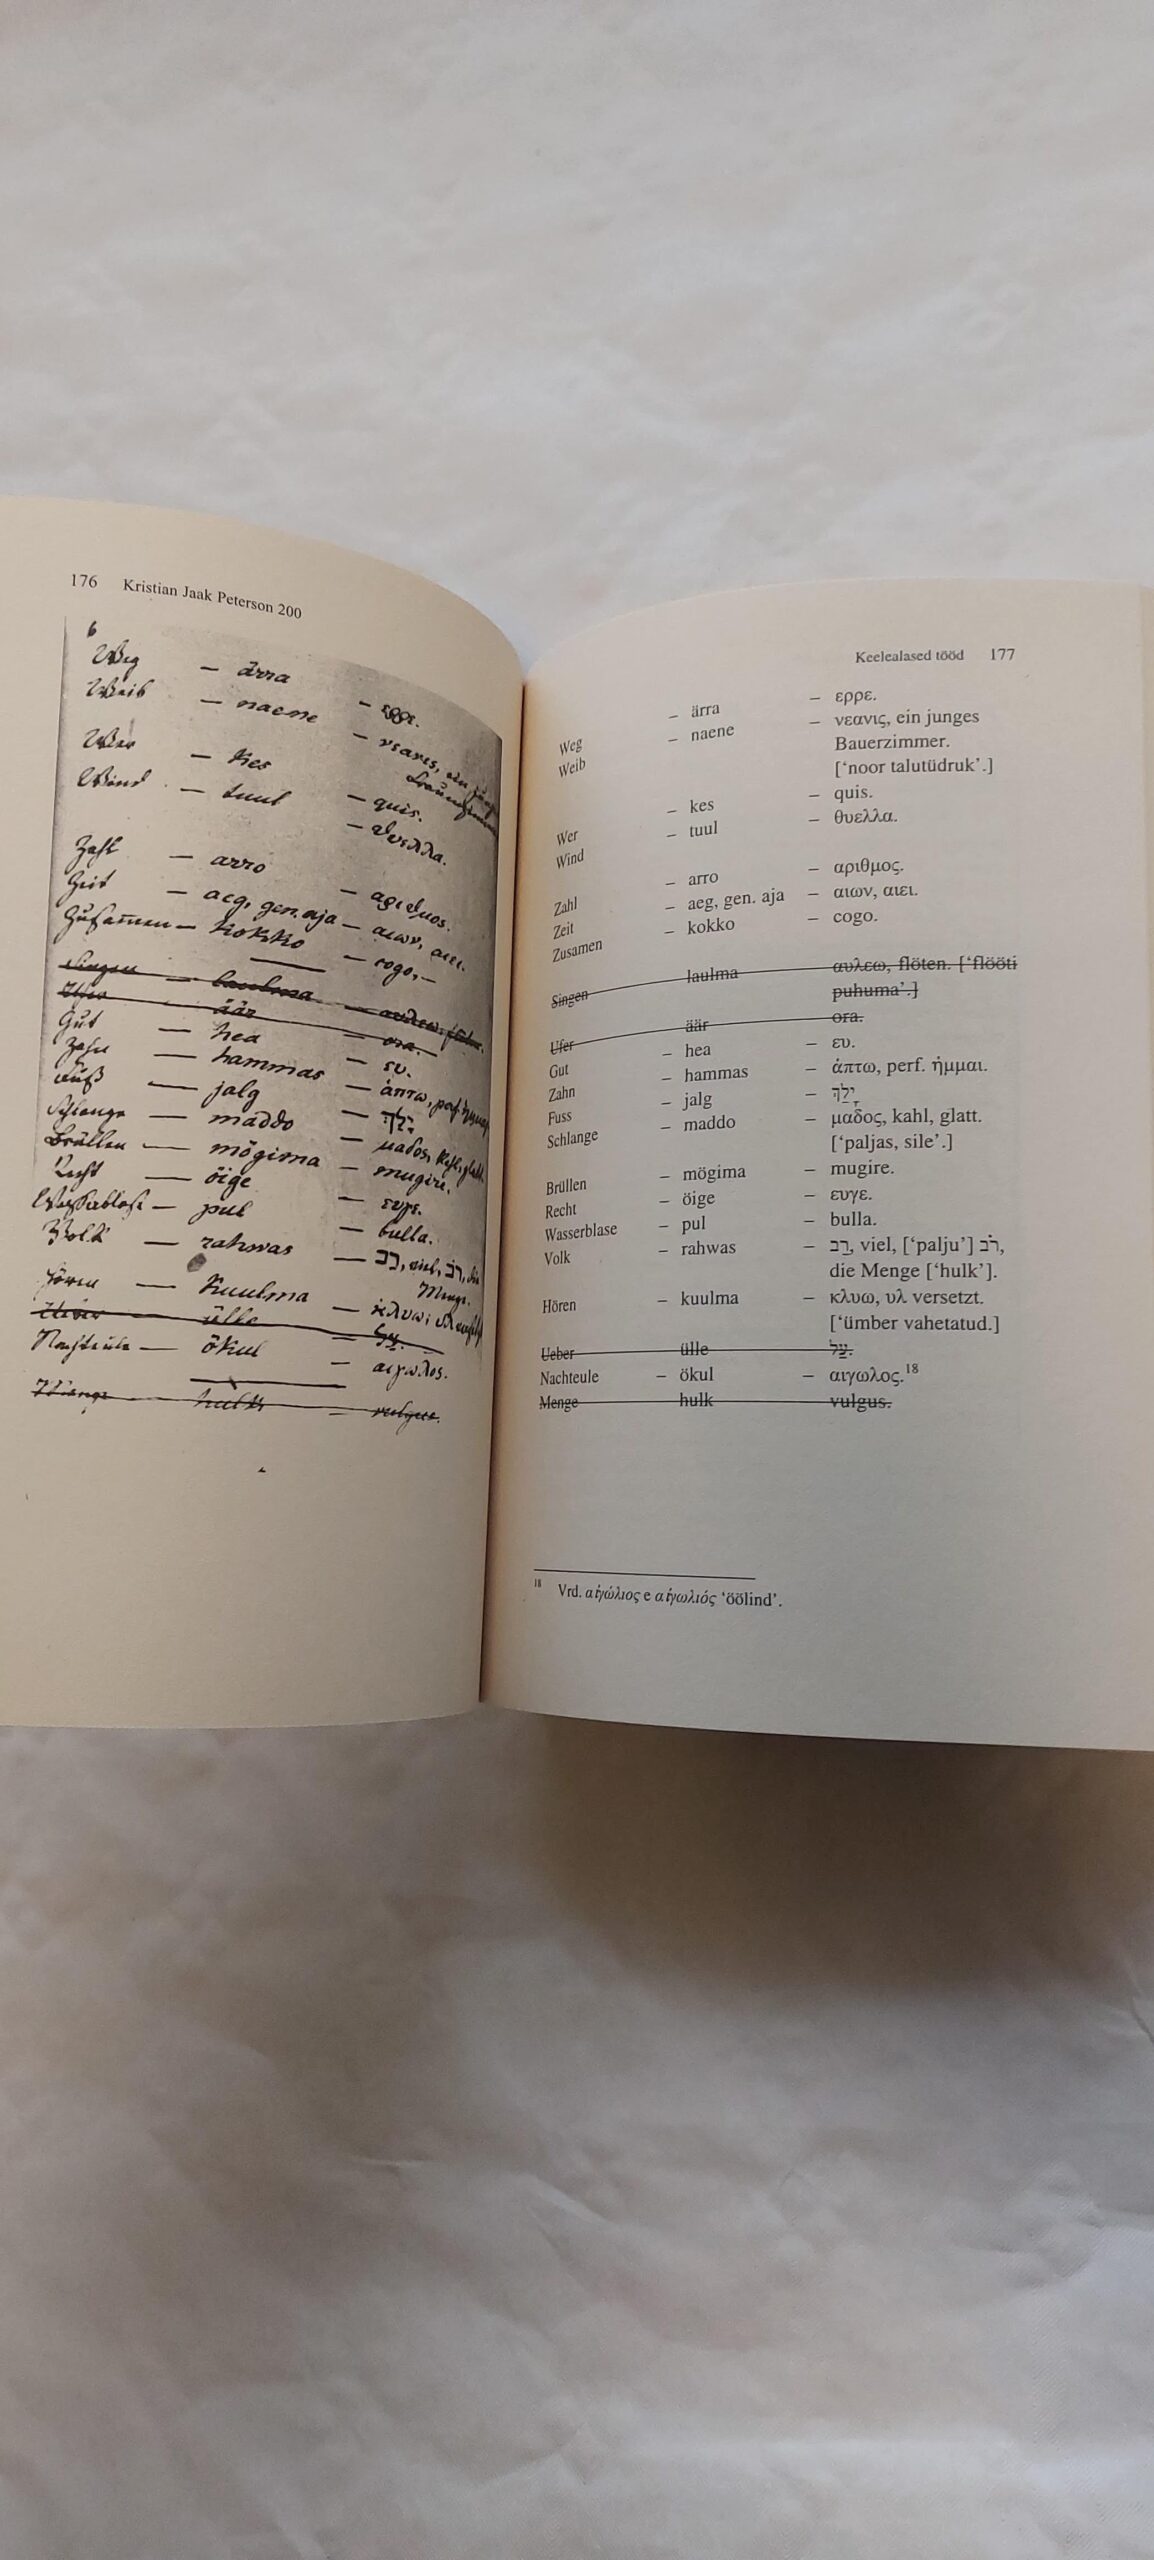 176 Kristian Jaak Peterson 200
6
Weg – ärra – ερρε.
Weib – naene – νεανις, ein junges
Wer – kes – quis.
Wind – tuul – θυελλα.
Zahl – arro – αριθμος.
Zeit – aeg, gen. aja – αιων, αιει.
Zusamen – kokko – cogo, –
Singen – laulma – αυλεω, flöten.
Ufer äär – ora.
Gut – hea – ευ.
Zahn – hammas – ἁπτω, perf. ἡμμαι
Fuß – jalg – יָלַךְ
Schlange – maddo – μαδος, kahl, glatt.
Brüllen – mögima – mugire.
Recht – öige – ευγε.
Wasserblase – pul – bulla.
Volk – rahwas – רַב, viel, רֹב, die
Menge.
Hören – kuulma – κλυω; υλ versetzt
Ueber ülle – עַל.
Nachteule – ökul – αιγωλος.
Menge hulk – vulgus.
Keelealased tööd 177
Weg – ärra – ερρε.
Weib – naene – νεανις, ein junges
Bauerzimmer.
[‘noor talutüdruk’.]
Wer – kes – quis.
Wind – tuul – θυελλα.
Zahl – arro – αριθμος.
Zeit – aeg, gen. aja – αιων, αιει.
Zusamen – kokko – cogo.
Singen laulma αυλεω, flöten. [‘flööti
puhuma’.]
Ufer äär ora.
Gut – hea – ευ.
Zahn – hammas – ἁπτω, perf. ἡμμαι.
Fuss – jalg – יָלַךְ
Schlange – maddo – μαδος, kahl, glatt.
[‘paljas, sile’.]
Brüllen – mögima – mugire.
Recht – öige – ευγε.
Wasserblase – pul – bulla.
Volk – rahwas – רַב, viel, [‘palju’] רֹב,
die Menge [‘hulk’].
Hören – kuulma – κλυω, υλ versetzt.
[‘ümber vahetatud.]
Ueber ülle עַל.
Nachteule – ökul – αιγωλος.18
Menge hulk vulgus.
18 Vrd. αἰγώλιος e αἰγωλιός ‘öölind’.